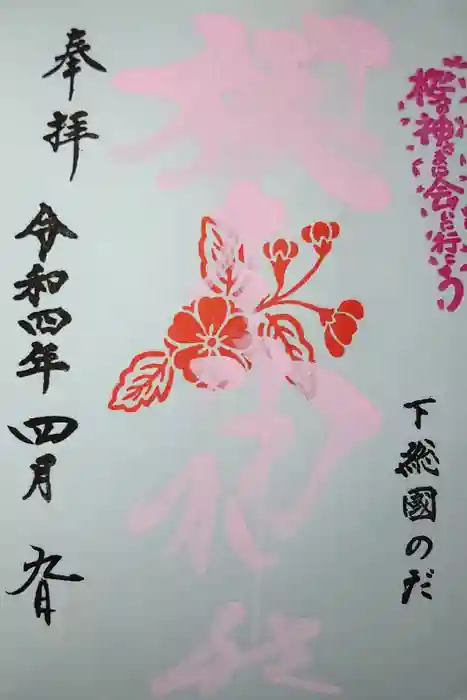 櫻の神さまに会いに行こう
下総國のだ
櫻木神社
奉拝
令和四年四月九日